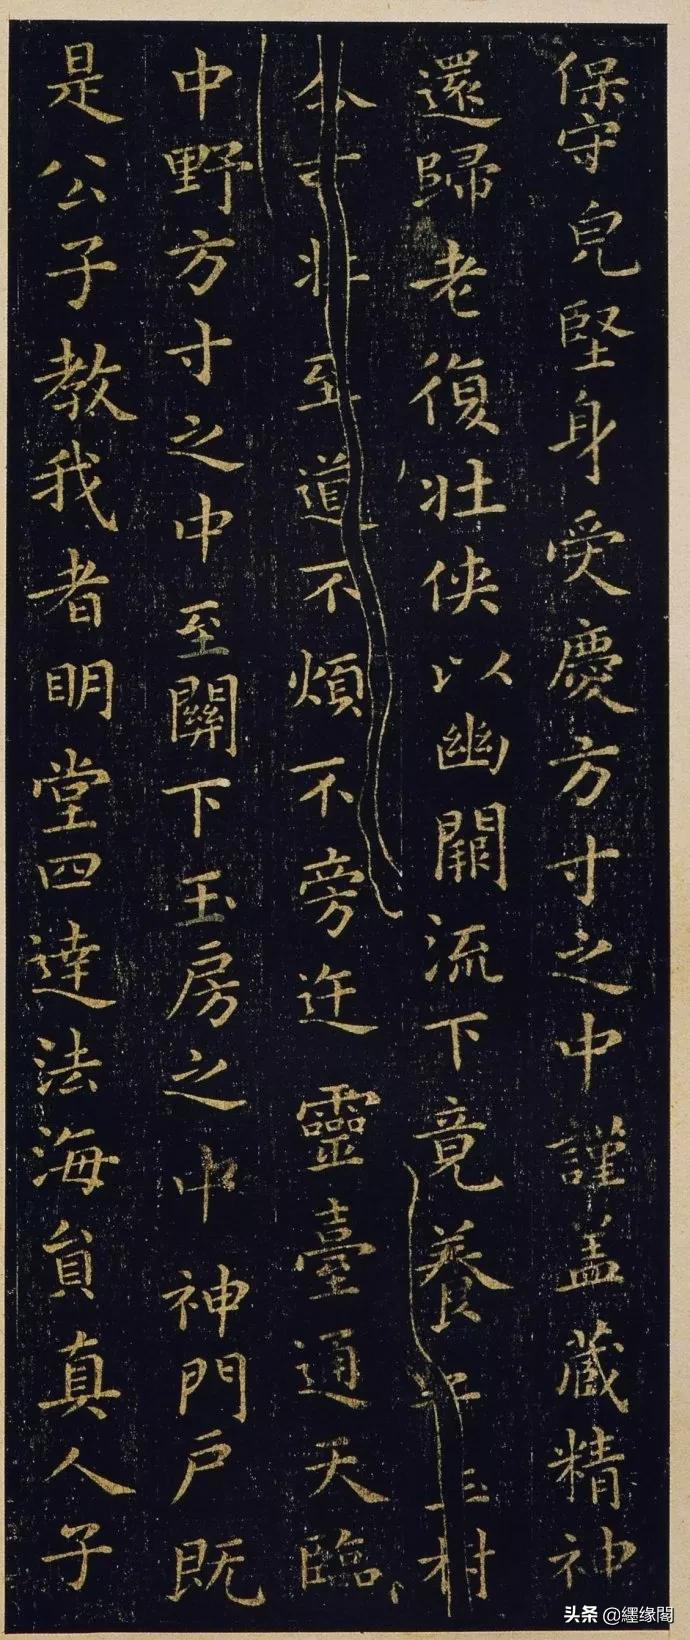 保守皃堅身受慶方寸之中謹盖藏精神
還歸老復壯侠以幽關流下竟養村
壯至道不煩不旁迕靈臺通天臨
中野方寸之中至關下玉房之中神門戶既
是公子教我者明堂四達法海員真人子
头条 @纆缘閣